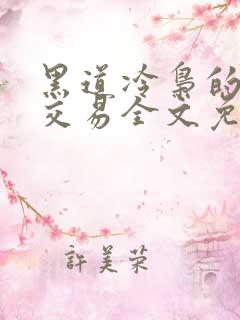 黑道冷枭的
交易全文免
許美荣